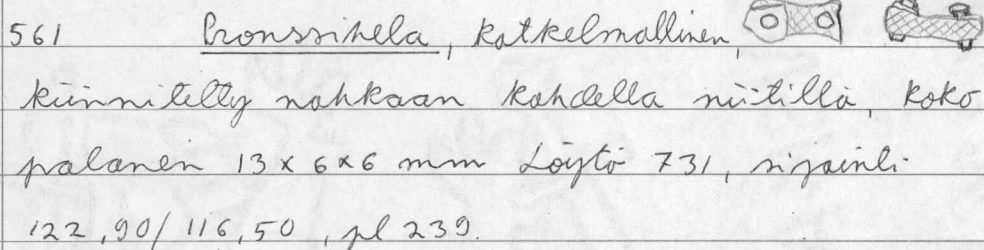 561 Pronssihela, katkelmallinen,
kiinnitetty nahkaan kahdella niitillä, koko
palanen 13 x 6 x 6 mm Löytö 731, sijainti
122,90/116,50, pl 239.